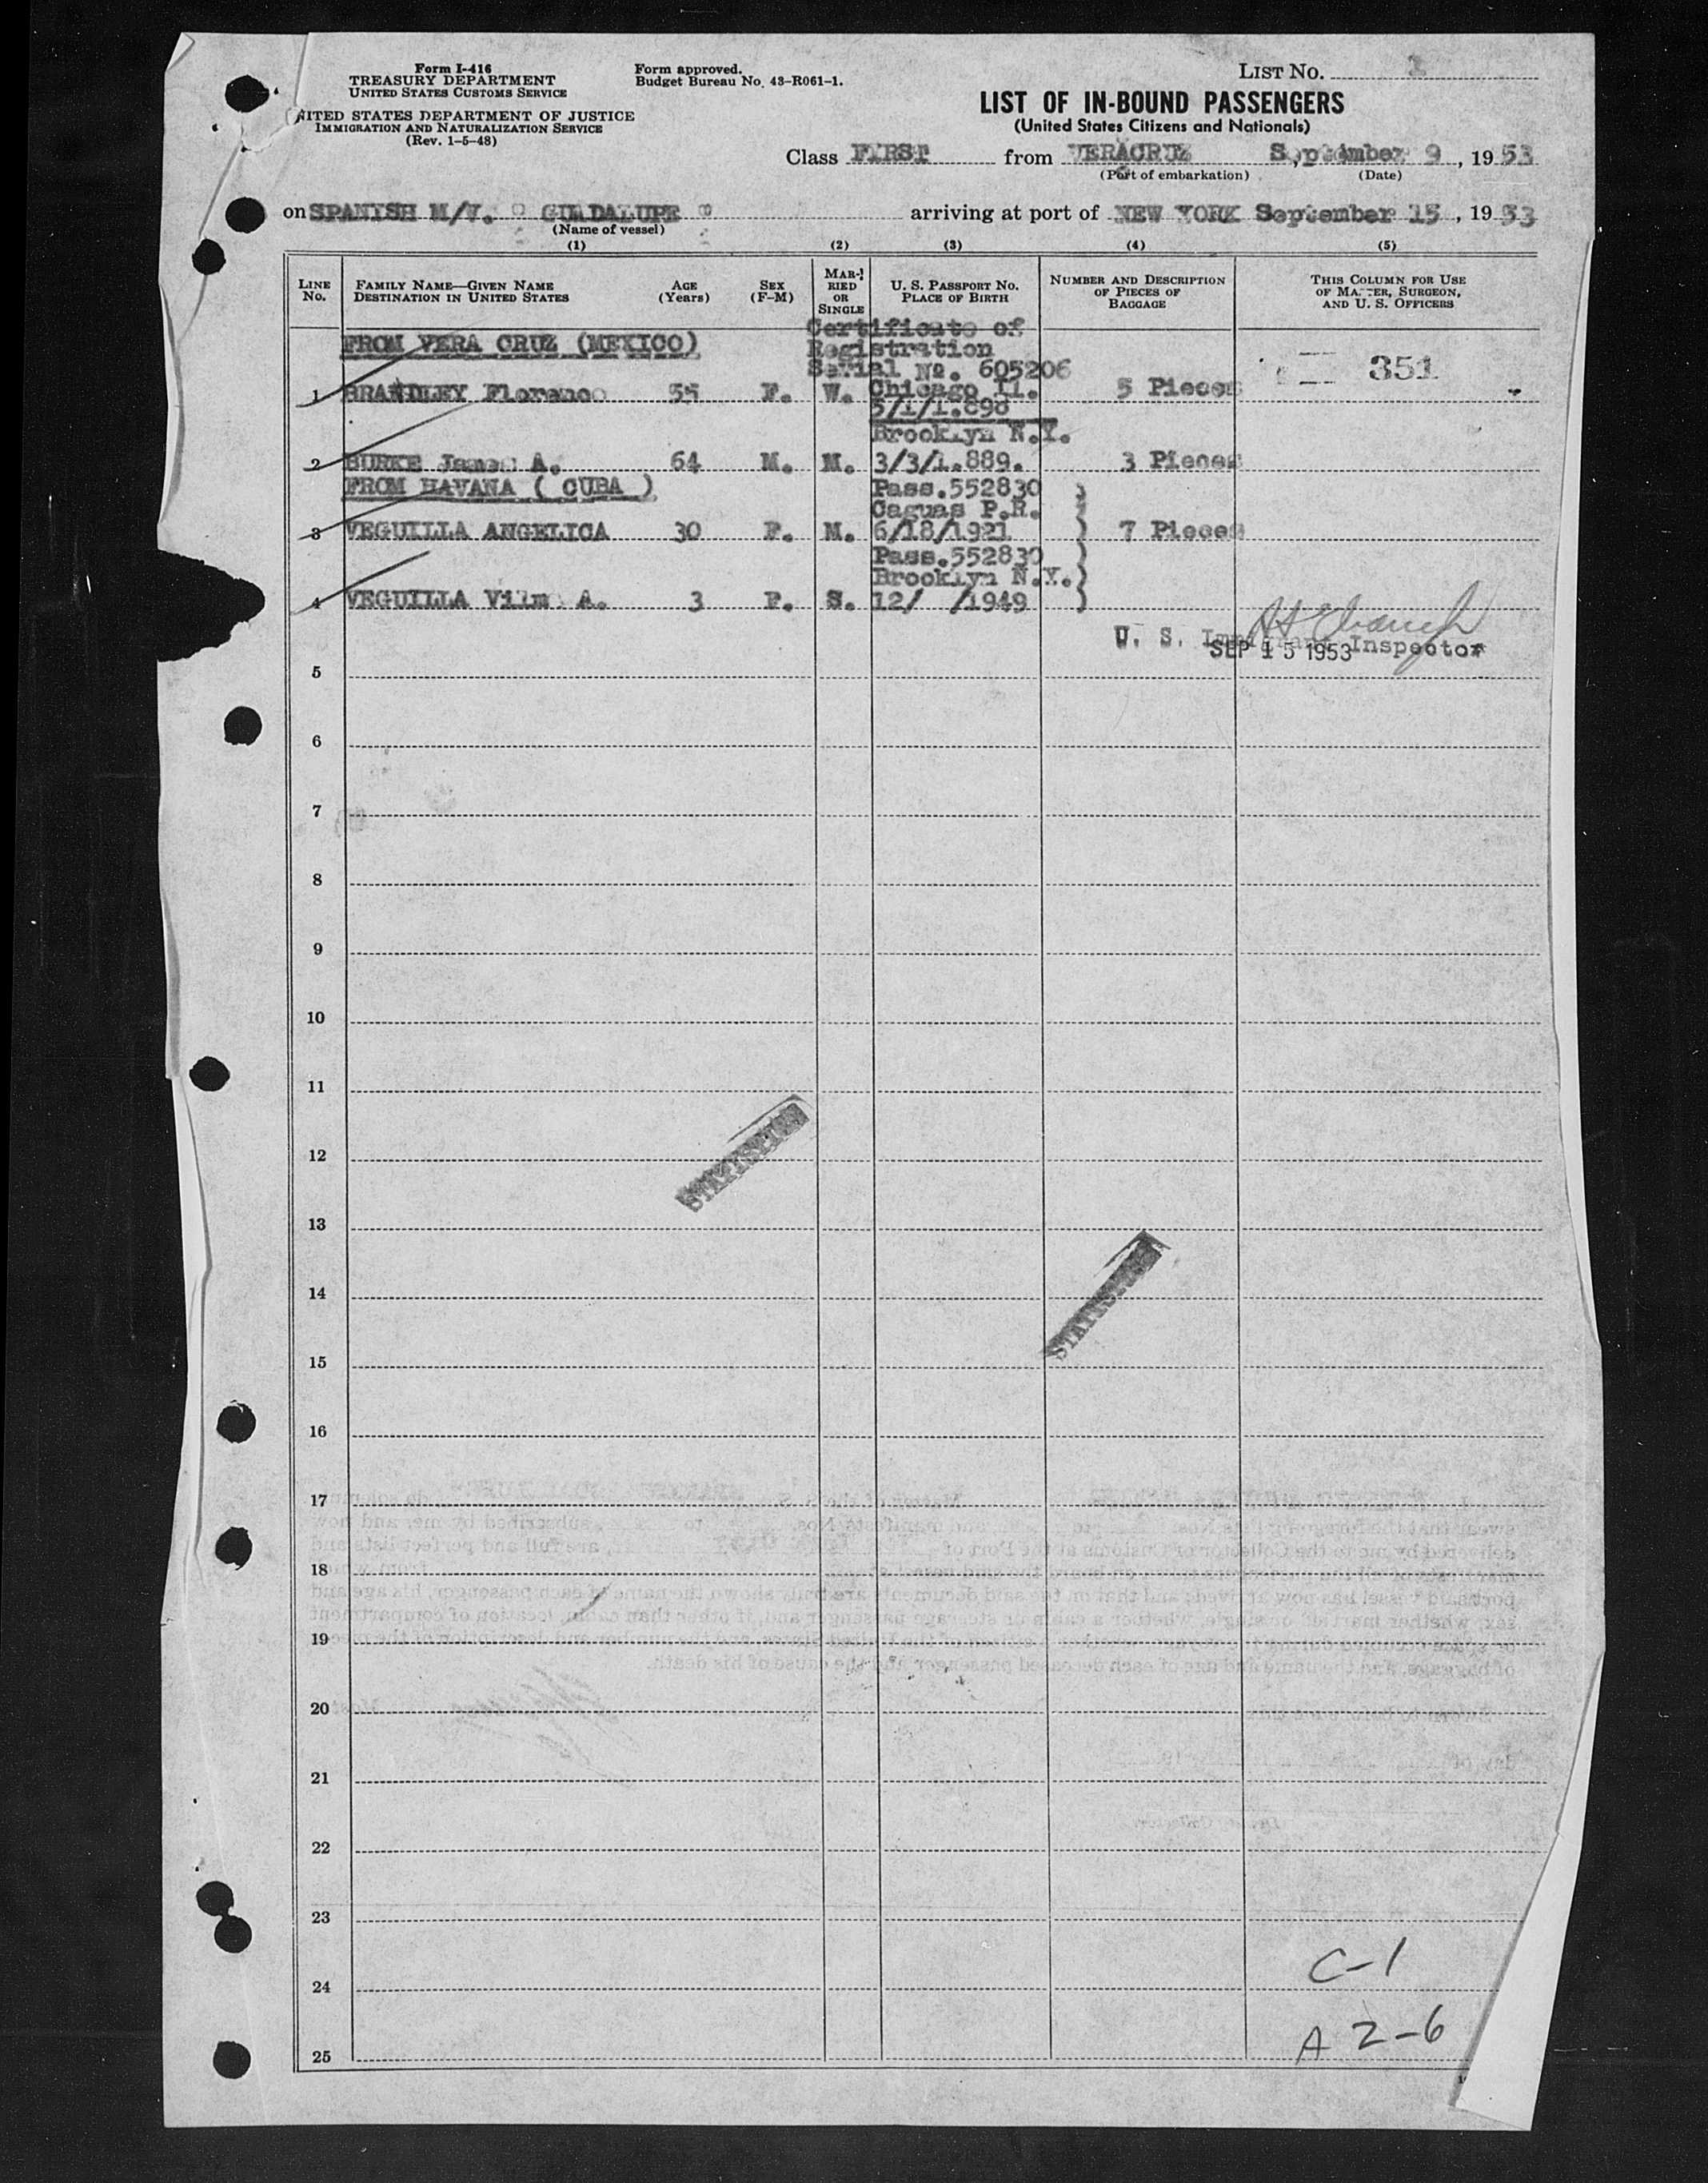 Form I-416
TREASURY DEPARTMENT
UNITED STATES CUSTOMS SERVICE
NITED STATES DEPARTMENT OF JUSTICE
IMMIGRATION AND NATURALIZATION SERVICE
(Rev. 1-5-48)
Form approved.
Budget Bureau No. 43-R061-1.
LIST NO.
LIST OF IN-BOUND PASSENGERS
(United States Citizens and Nationals)
Class FIRST from VERACRUZ September 9, 1953
(Port of embarkation) (Date)
on SPANISH M/V. GUADALUPE arriving at port of NEW YORK September 15, 1953
(Name of vessel)
(1) (2) (3) (4) (5)
LINE NO.
FAMILY NAME—GIVEN NAME
DESTINATION IN UNITED STATES
AGE (Years)
SEX (F-M)
MARRIED OR SINGLE
U. S. PASSPORT NO.
PLACE OF BIRTH
NUMBER AND DESCRIPTION
OF PIECES OF
BAGGAGE
THIS COLUMN FOR USE
OF MASTER, SURGEON,
AND U. S. OFFICERS
FROM VERA CRUZ (MEXICO)
Certificate of
Registration
Serial Nº. 605206
351
Chicago Il.
1 BRANDLEY Florence 55 F. W. 5/1/1.898 5 Pieces
Brooklyn N.Y.
2 BURKE James A. 64 M. M. 3/3/1.889. 3 Pieces
FROM HAVANA ( CUBA )
Pass.552830 )
Caguas P.R. )
3 VEGUILLA ANGELICA 30 F. M. 6/18/1921 ) 7 Pieces
Pass.552830 )
Brooklyn N.Y.)
4 VEGUILLA Vilma A. 3 F. S. 12/ /1949 )
U. S. Immigrant Inspector
SEP 15 1953
5
6
7
8
9
10
11
12
13
14
15
16
17
18
19
20
21
22
23
24
25
C-1
A 2-6